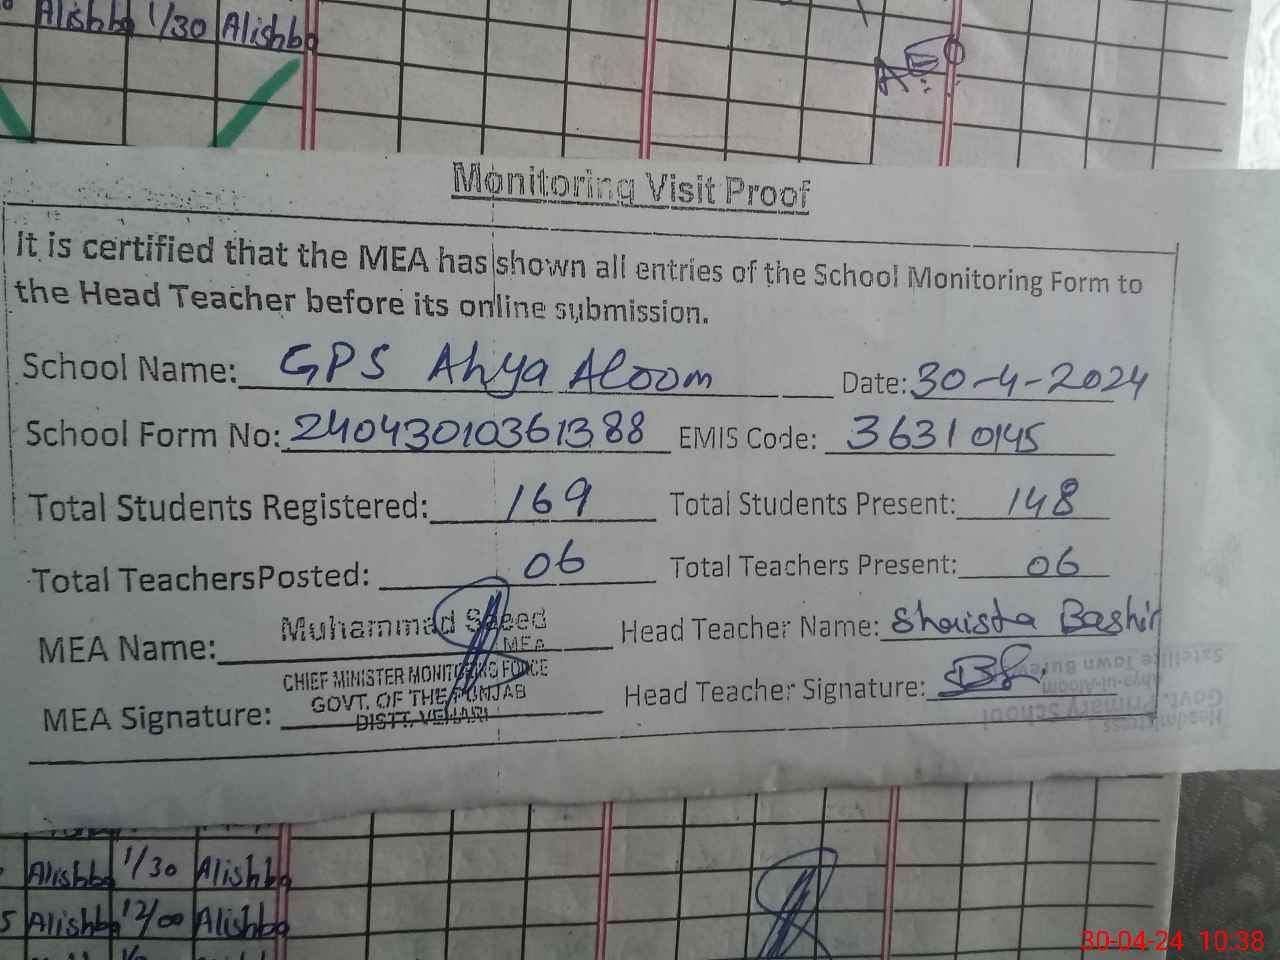 Alishba 1/30 Alishba
Monitoring Visit Proof
It is certified that the MEA has shown all entries of the School Monitoring Form to
the Head Teacher before its online submission.
School Name: GPS Ahya Aloom Date: 30-4-2024
School Form No: 240430103613 88 EMIS Code: 36310145
Total Students Registered: 169 Total Students Present: 148
Total TeachersPosted: 06 Total Teachers Present: 06
MEA Name: Muhammad Saeed Head Teacher Name: Shaista Bashir
MEA
CHIEF MINISTER MONITORING FORCE
GOVT. OF THE PUNJAB
MEA Signature: DISTT. VEHARI Head Teacher Signature:
Headmistress
Govt. Primary School
Ahya-ul-Aloom
Satellite Town Burewala
Alishba 1/30 Alishba
Alishba 12/00 Alishba
30-04-24 10:38